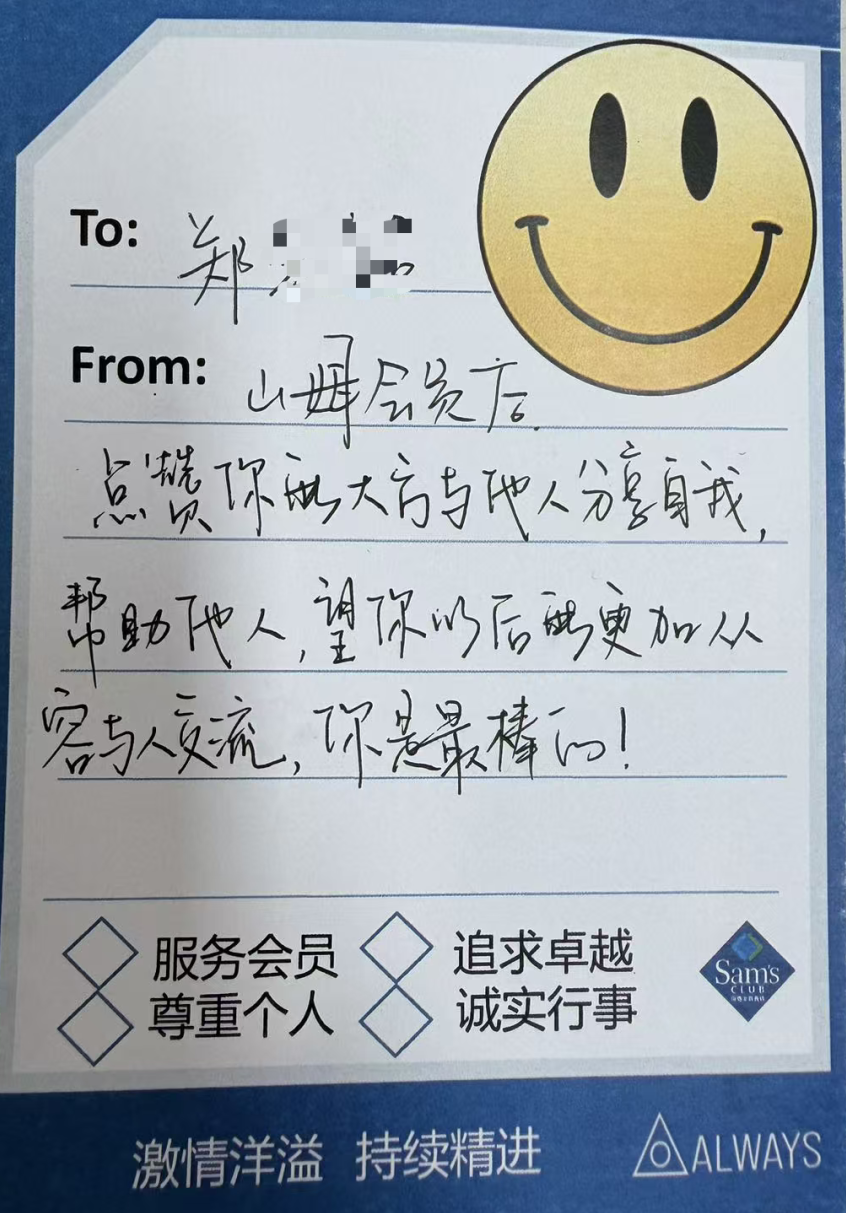 To: 郑
From: 山姆会员店
点赞你能大方与他人分享自我,
帮助他人,望你以后能更加从
容与人交流,你是最棒的!
服务会员 追求卓越
尊重个人 诚实行事
Sam's
CLUB
激情洋溢 持续精进 ALWAYS